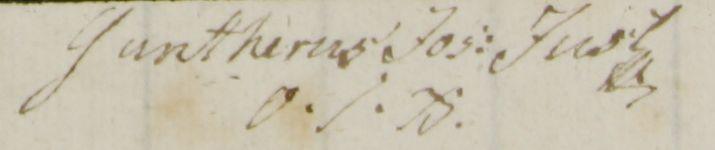 Guntherus Jos: Just
O. S. B.